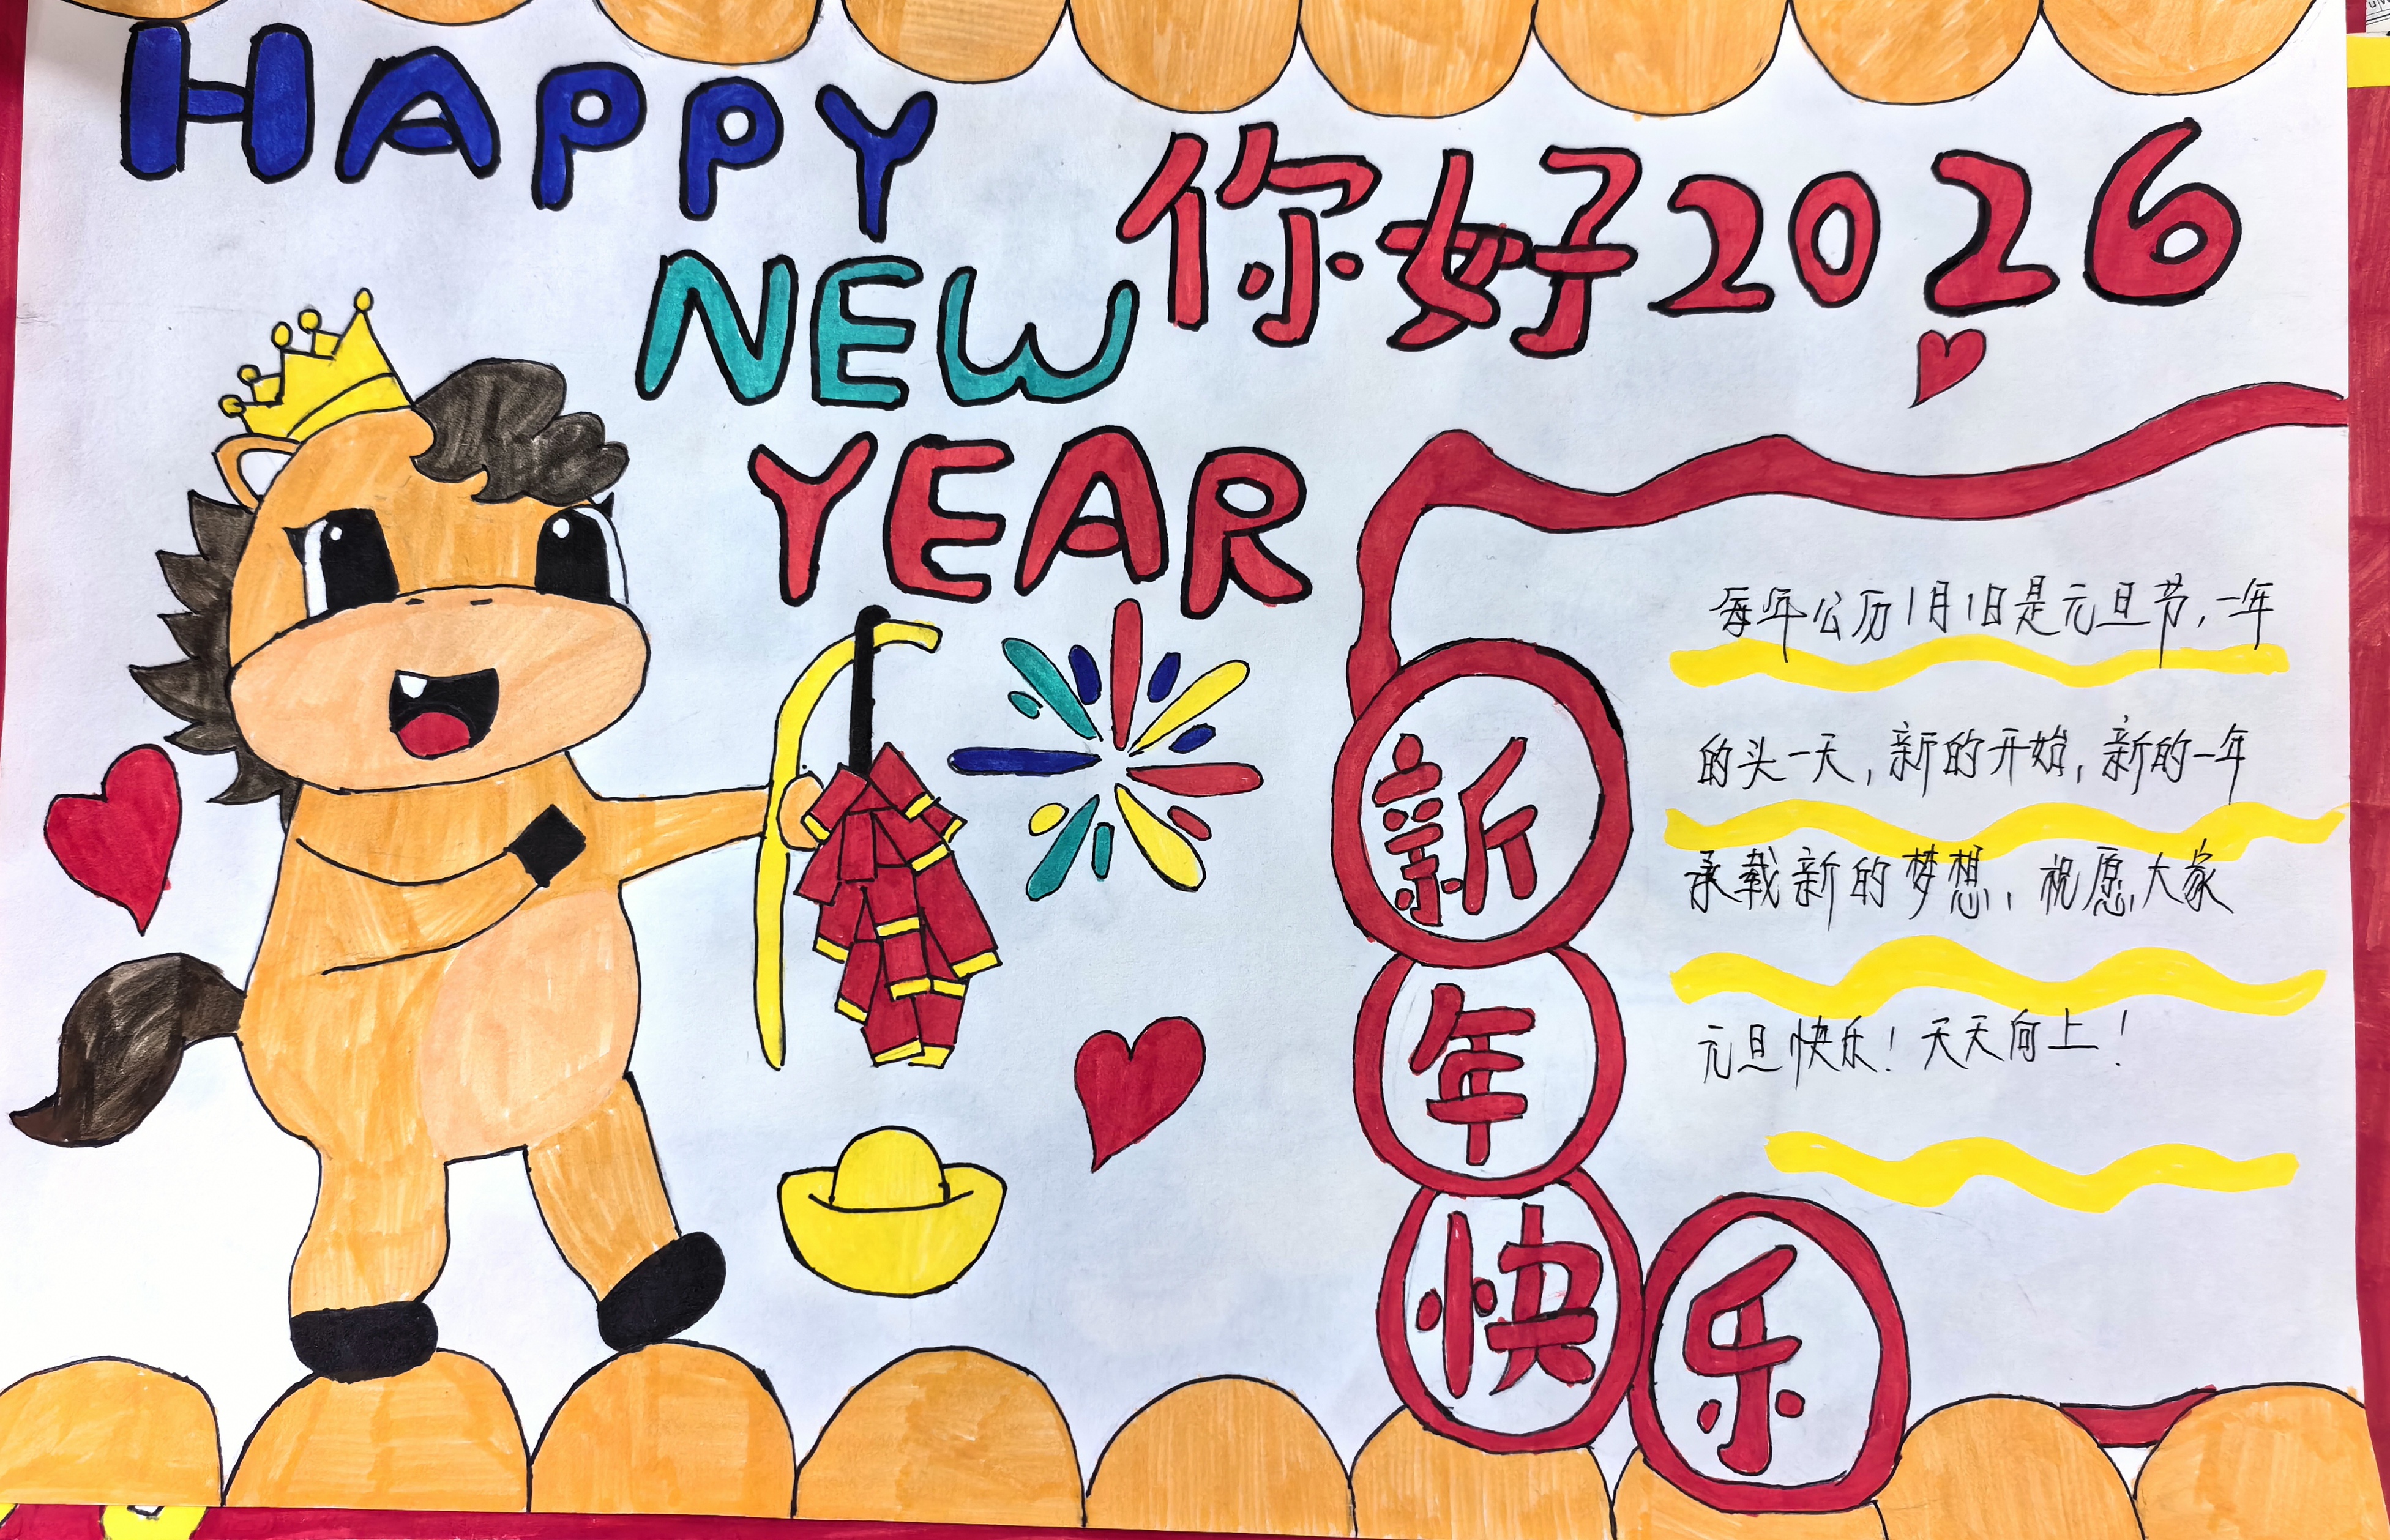 HAPPY
你好2026
NEW
YEAR
每年公历1月1日是元旦节,一年
的头一天,新的开始,新的一年
承载新的梦想,祝愿大家
元旦快乐!天天向上!
新
年
快
乐